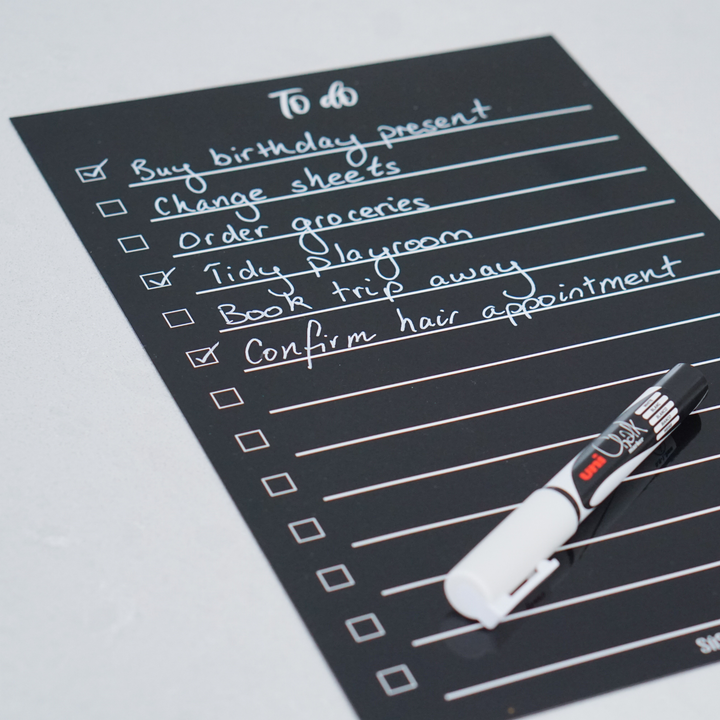 To do
Buy birthday present
Change sheets
Order groceries
Tidy Playroom
Book trip away
Confirm hair appointment
uni Chalk